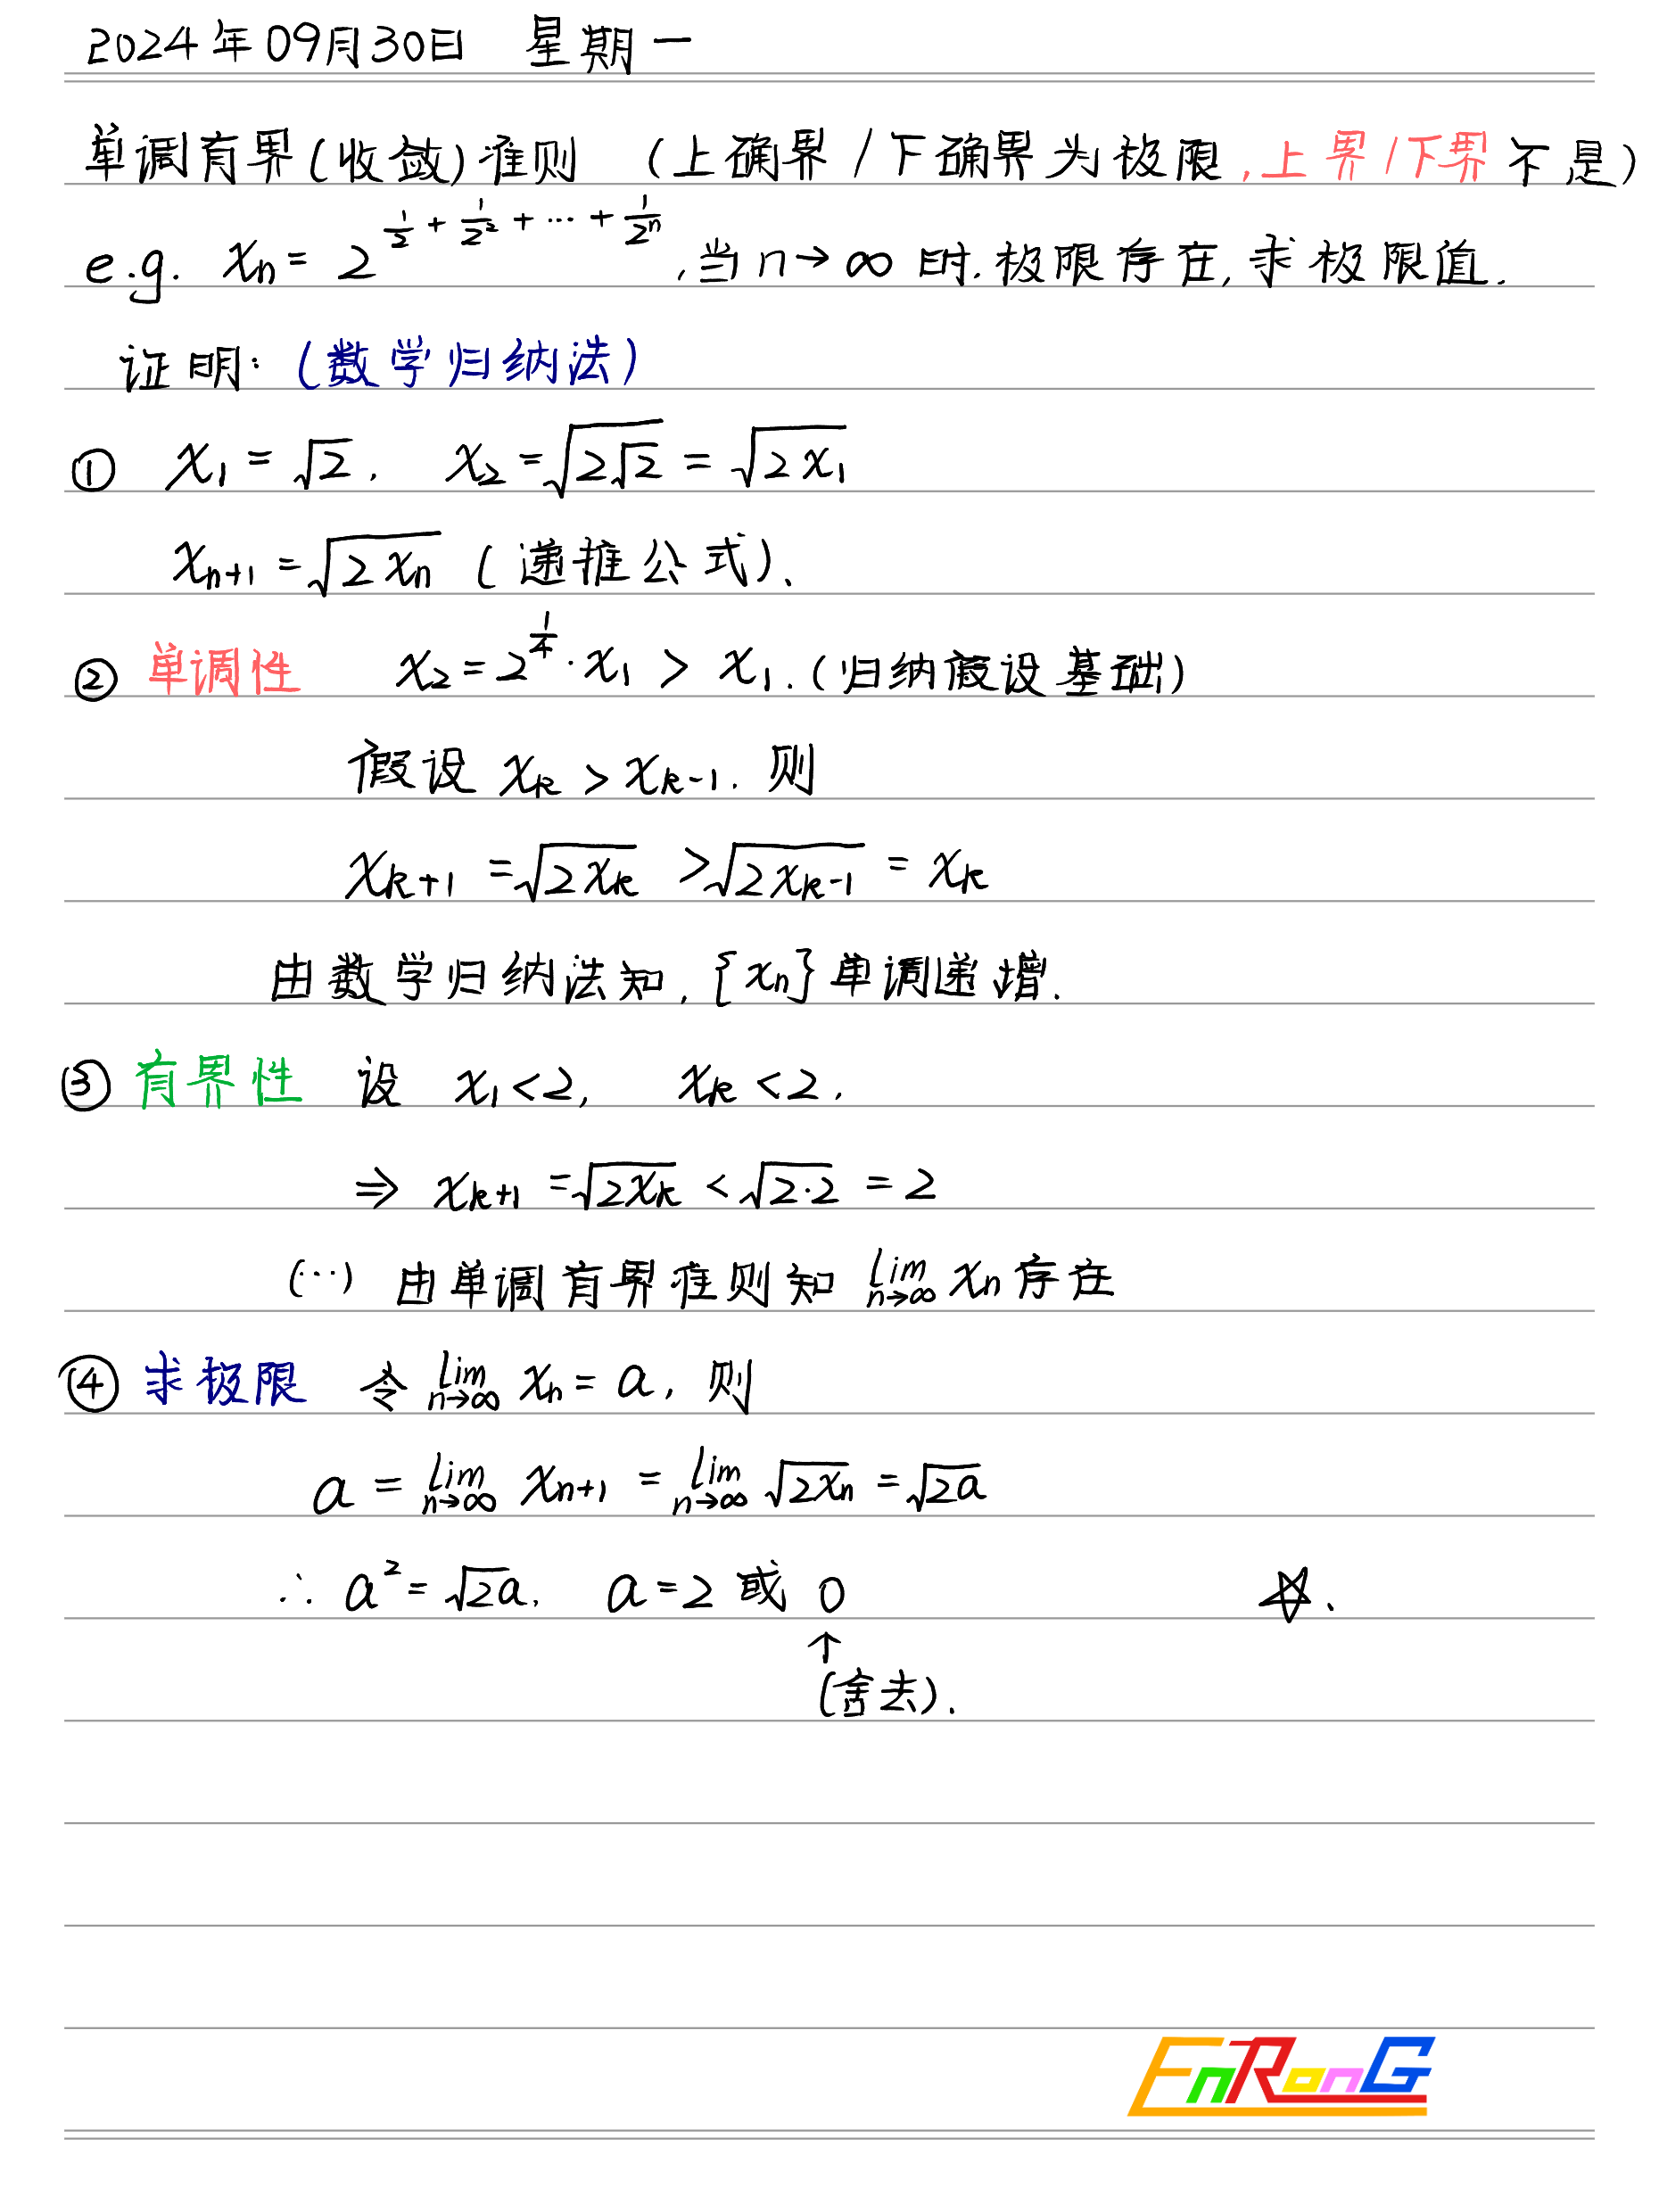 2024年09月30日 星期一
单调有界(收敛)准则 (上确界/下确界为极限,上界/下界不是)
e.g. xₙ = 2^(1/2 + 1/2² + ⋯ + 1/2ⁿ), 当 n→∞ 时.极限存在,求极限值.
证明: (数学归纳法)
① x₁ = √2, x₂ = √(2√2) = √(2x₁)
xₙ₊₁ = √(2xₙ) (递推公式).
② 单调性 x₂ = 2^(1/4) · x₁ > x₁. (归纳假设基础)
假设 xₖ > xₖ₋₁. 则
xₖ₊₁ = √(2xₖ) > √(2xₖ₋₁) = xₖ
由数学归纳法知, {xₙ}单调递增.
③ 有界性 设 x₁<2, xₖ<2,
⇒ xₖ₊₁ = √(2xₖ) < √(2·2) = 2
(⋯) 由单调有界准则知 lim n→∞ xₙ 存在
④ 求极限 令 lim n→∞ xₙ = a, 则
a = lim n→∞ xₙ₊₁ = lim n→∞ √(2xₙ) = √(2a)
∴ a² = √2a. a=2 或 0 ☆.
↑
(舍去).
EnRonG